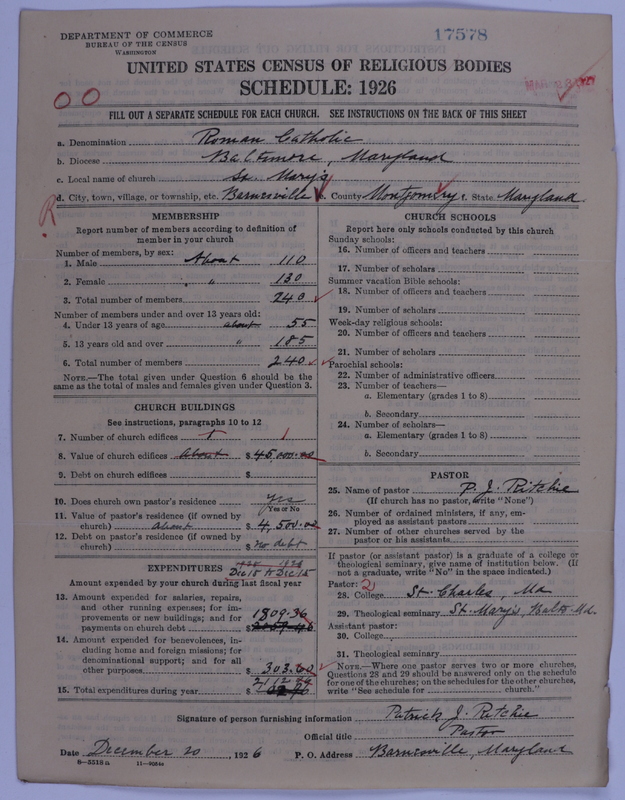 DEPARTMENT OF COMMERCE
BUREAU OF THE CENSUS
WASHINGTON
17578
UNITED STATES CENSUS OF RELIGIOUS BODIES
SCHEDULE: 1926
OO
FILL OUT A SEPARATE SCHEDULE FOR EACH CHURCH. SEE INSTRUCTIONS ON THE BACK OF THIS SHEET
a. Denomination Roman Catholic
b. Diocese Baltimore, Maryland
c. Local name of church St. Mary's
d. City, town, village, or township, etc. Barnesville e. County Montgomery f. State Maryland.
R
MEMBERSHIP
Report number of members according to definition of
member in your church
Number of members, by sex:
1. Male About 110
2. Female " " 130
3. Total number of members 240
Number of members under and over 13 years old:
4. Under 13 years of age about 55
5. 13 years old and over " 185
6. Total number of members 240
NOTE.—The total given under Question 6 should be the
same as the total of males and females given under Question 3.
CHURCH BUILDINGS
See instructions, paragraphs 10 to 12
7. Number of church edifices 1 1
8. Value of church edifices About $ 45,000.00
9. Debt on church edifices $
10. Does church own pastor's residence yes
Yes or No
11. Value of pastor's residence (if owned by
church) about $ 4,500.00
12. Debt on pastor's residence (if owned by
church) $ no debt
EXPENDITURES Dec 15 to Dec 15
Amount expended by your church during last fiscal year
13. Amount expended for salaries, repairs,
and other running expenses; for im-
provements or new buildings; and for
payments on church debt $ 1809.36
14. Amount expended for benevolences, in-
cluding home and foreign missions; for
denominational support; and for all
other purposes $ 303.60
15. Total expenditures during year $ 2112
CHURCH SCHOOLS
Report here only schools conducted by this church
Sunday schools:
16. Number of officers and teachers
17. Number of scholars
Summer vacation Bible schools:
18. Number of officers and teachers
19. Number of scholars
Week-day religious schools:
20. Number of officers and teachers
21. Number of scholars
Parochial schools:
22. Number of administrative officers
23. Number of teachers—
a. Elementary (grades 1 to 8)
b. Secondary
24. Number of scholars—
a. Elementary (grades 1 to 8)
b. Secondary
PASTOR
25. Name of pastor P. J. Ritchie
(If church has no pastor, write "None")
26. Number of ordained ministers, if any, em-
ployed as assistant pastors
27. Number of other churches served by the
pastor or his assistants
If pastor (or assistant pastor) is a graduate of a college or
theological seminary, give name of institution below. (If
not a graduate, write "No" in the space indicated.)
Pastor: 2
28. College St. Charles, Md
29. Theological seminary St. Mary's, Balto Md.
Assistant pastor:
30. College
31. Theological seminary
NOTE.—Where one pastor serves two or more churches,
Questions 28 and 29 should be answered only on the schedule
for one of the churches; on the schedules for the other churches,
write "See schedule for church."
Signature of person furnishing information Patrick J. Ritchie
Official title Pastor
Date December 20, 1926 P. O. Address Barnesville, Maryland